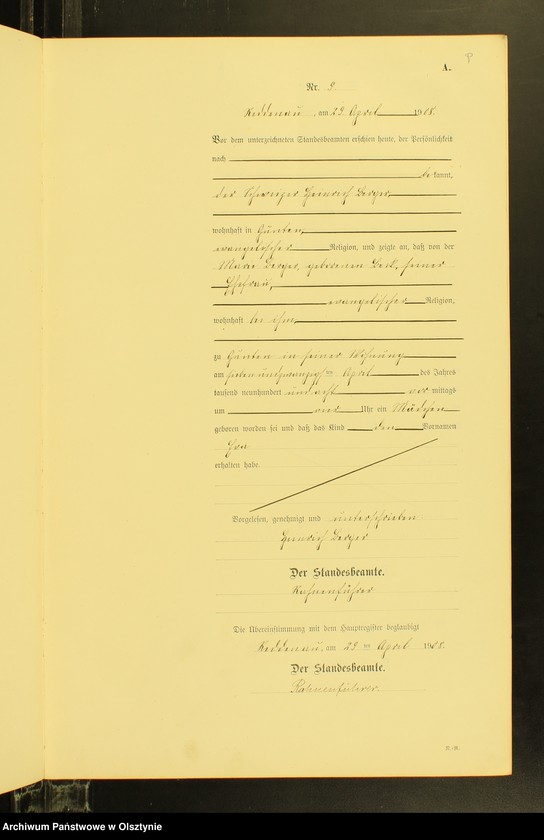 A.
Nr. 9
Reddenau, am 29 April 1908.
Vor dem unterzeichneten Standesbeamten erschien heute, der Persönlichkeit
nach
bekannt,
der Schweizer Heinrich Berger
wohnhaft in Günten
evangelischer Religion, und zeigte an, daß von der
Marie Berger, geborenen Beck, seiner
Ehefrau,
evangelischer Religion,
wohnhaft bei ihm
zu Günten in seiner Wohnung
am sieben und zwanzigsten April des Jahres
tausend neunhundert und acht vor mittags
um vier Uhr ein Mädchen
geboren worden sei und daß das Kind den Vornamen
erhalten habe.
Vorgelesen, genehmigt und unterschrieben
Heinrich Berger
Der Standesbeamte.
Rahnenführer
Die Übereinstimmung mit dem Hauptregister beglaubigt
Reddenau, am 29 ten April 1908.
Der Standesbeamte.
Rahnenführer.
Archiwum Państwowe w Olsztynie